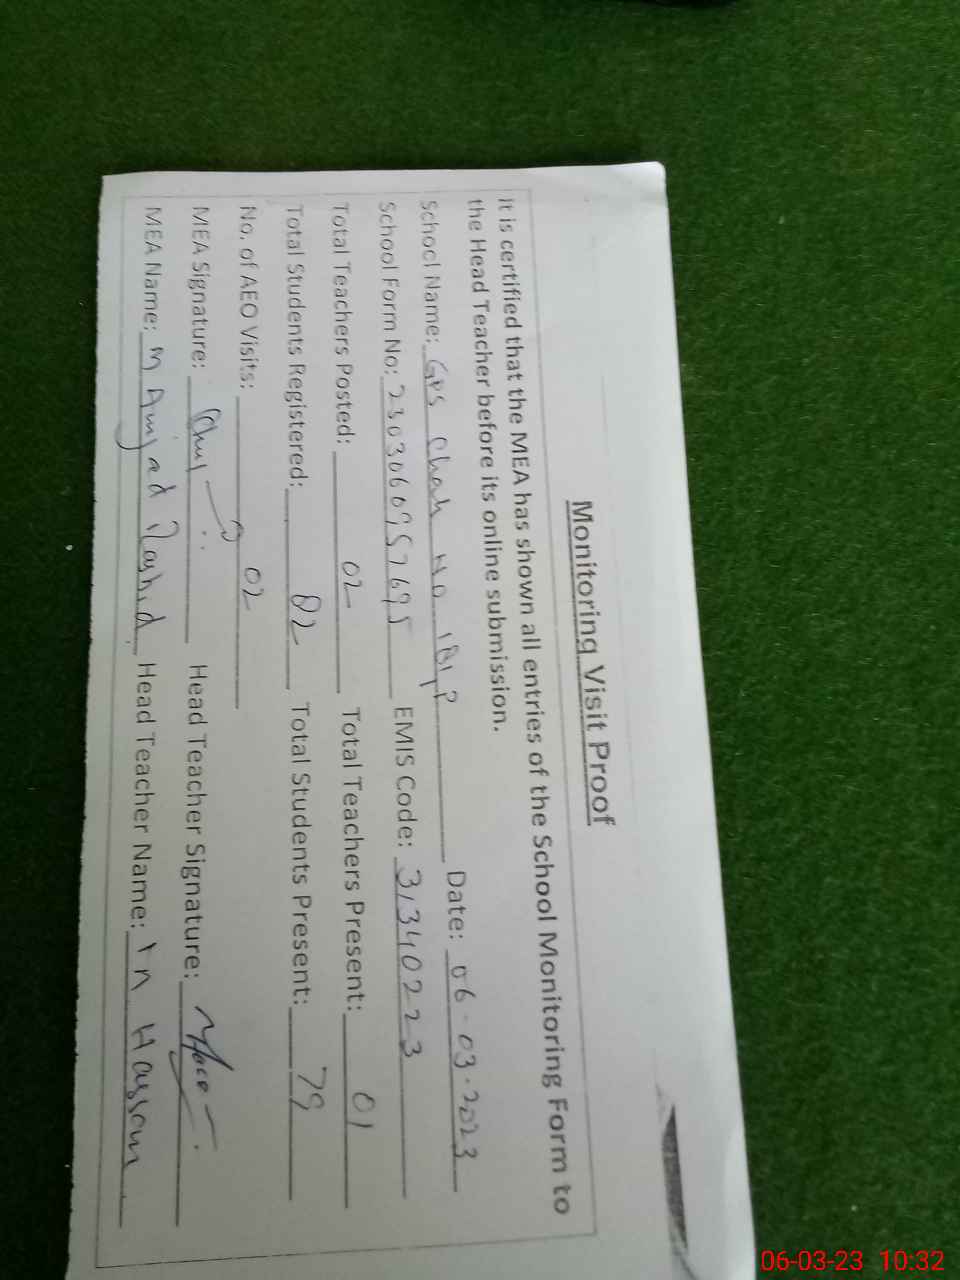 Monitoring Visit Proof
It is certified that the MEA has shown all entries of the School Monitoring Form to
the Head Teacher before its online submission.
School Name: GPS Chak No Date: 06-03-2023
School Form No: 2303060957695 EMIS Code: 31340223
Total Teachers Posted: 02 Total Teachers Present: 01
Total Students Registered: 82 Total Students Present: 79
No. of AEO Visits: 02
MEA Signature: Head Teacher Signature:
MEA Name: M Amjad Rashid Head Teacher Name: Hassan
06-03-23 10:32